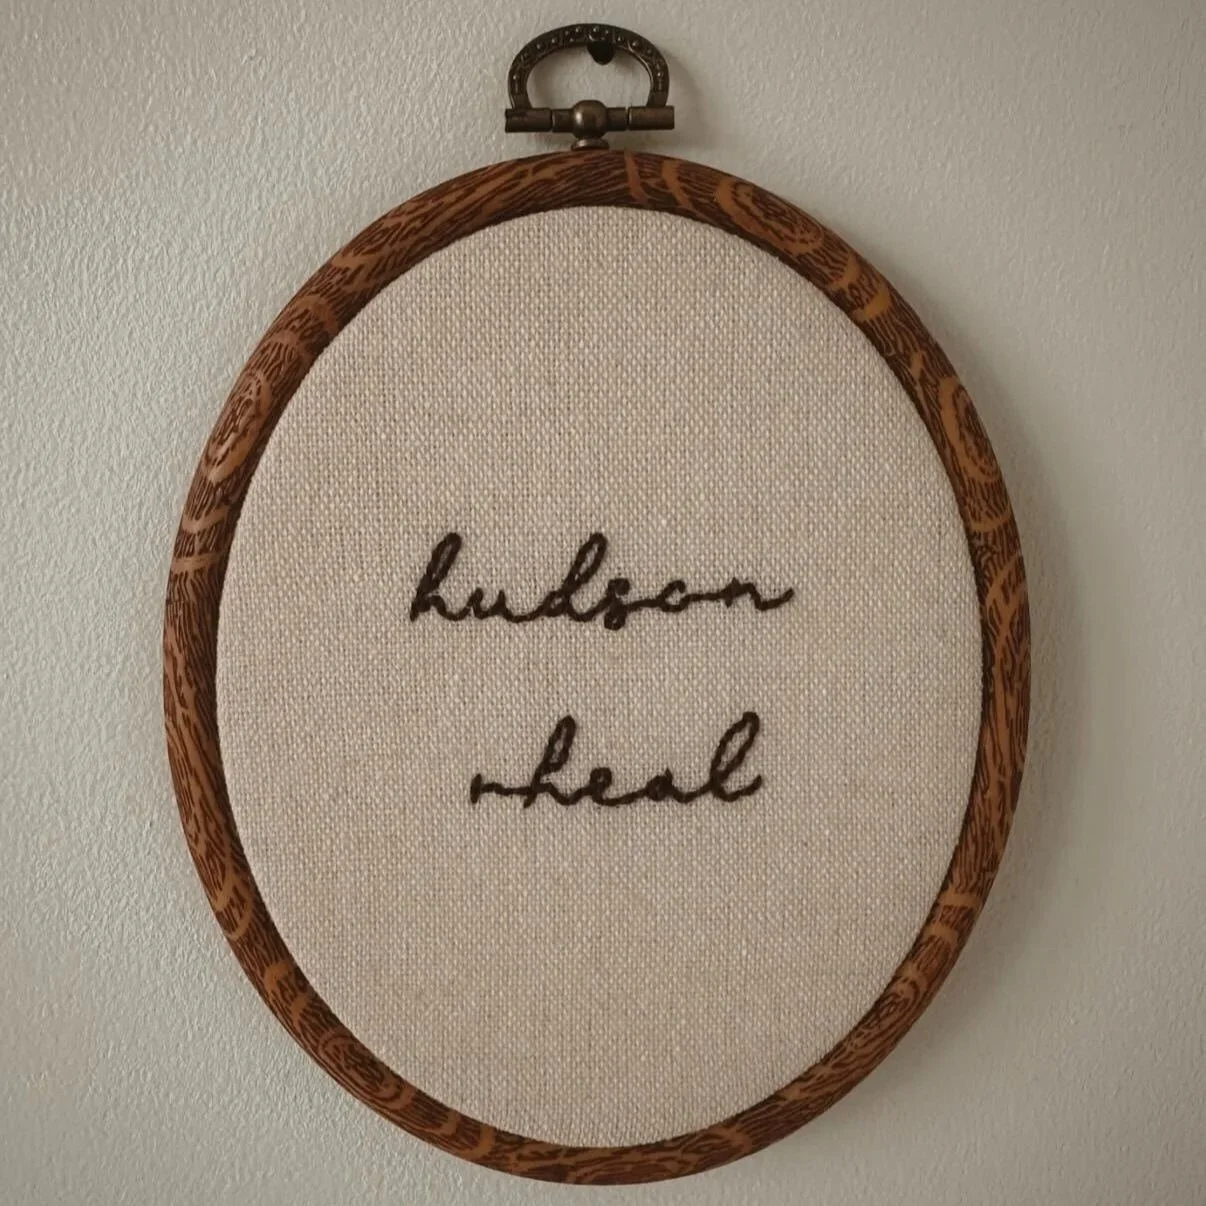 hudson
rheal